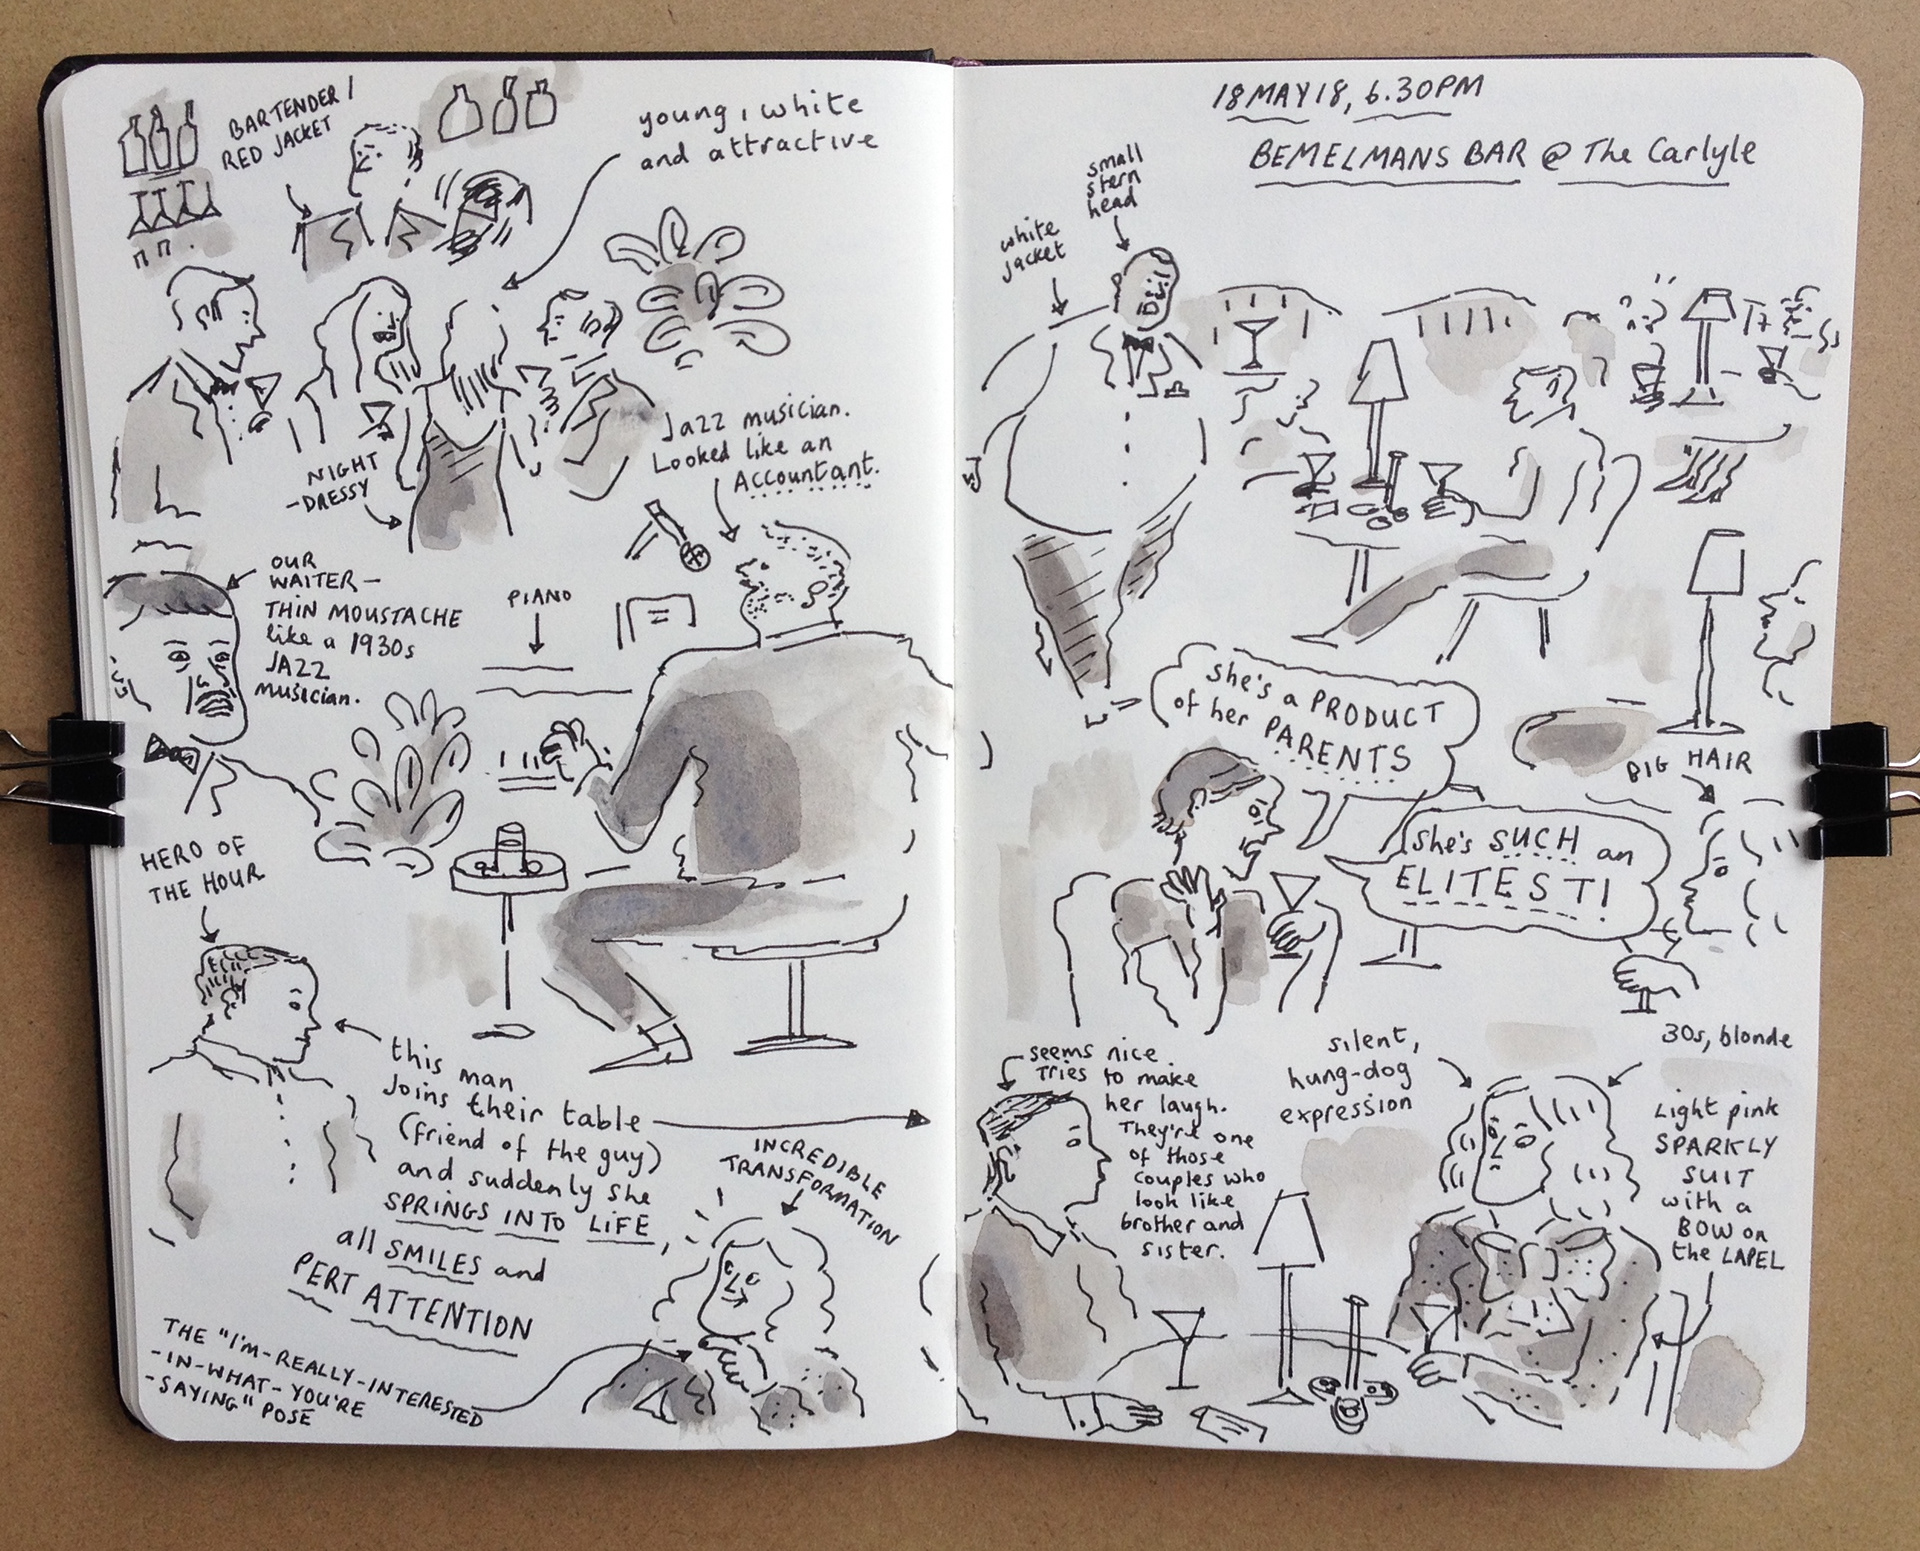 BARTENDER /
RED JACKET
young, white
and attractive
NIGHT
-DRESSY
Jazz musician.
Looked like an
Accountant.
OUR
WAITER -
THIN MOUSTACHE
like a 1930s
JAZZ
musician.
PIANO
HERO OF
THE HOUR
this man
Joins their table
(friend of the guy)
and suddenly she
SPRINGS INTO LIFE,
all SMILES and
PERT ATTENTION
INCREDIBLE
TRANSFORMATION
THE "I'M-REALLY-INTERESTED
-IN-WHAT-YOU'RE
-SAYING" POSE
18 MAY 18, 6.30PM
BEMELMANS BAR @ The Carlyle
small
stern
head
white
jacket
She's a PRODUCT
of her PARENTS
BIG HAIR
She's SUCH an
ELITEST!
seems nice.
Tries to make
her laugh.
They're one
of those
couples who
look like
brother and
sister.
silent,
hung-dog
expression
30s, blonde
Light pink
SPARKLY
SUIT
with a
BOW on
the LAPEL